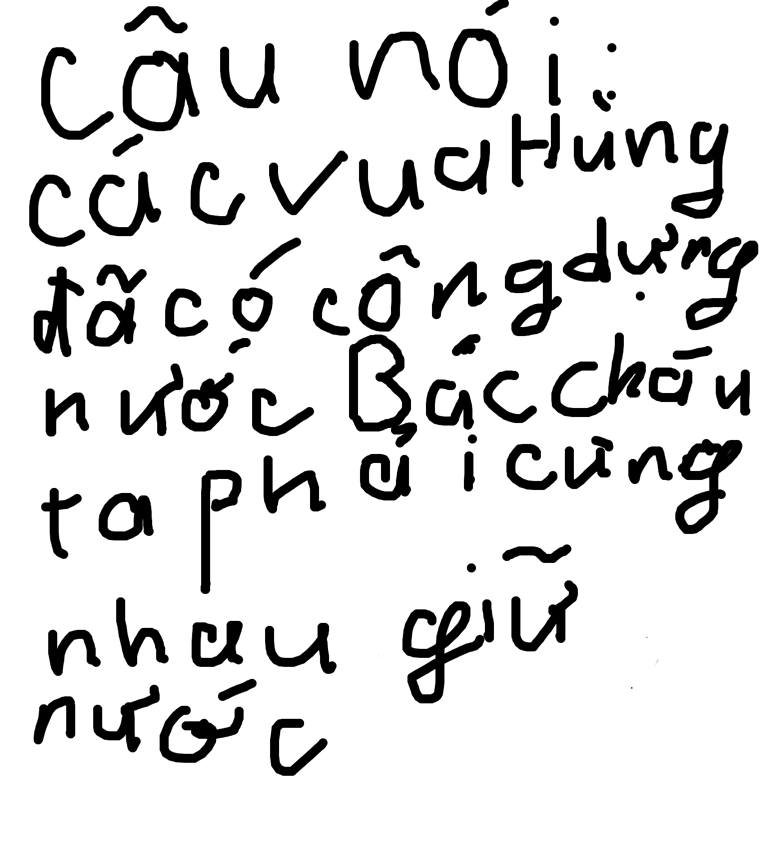 Câu nói:
các vua Hùng
đã có công dựng
nước Bác cháu
ta phải cùng
nhau giữ
nước